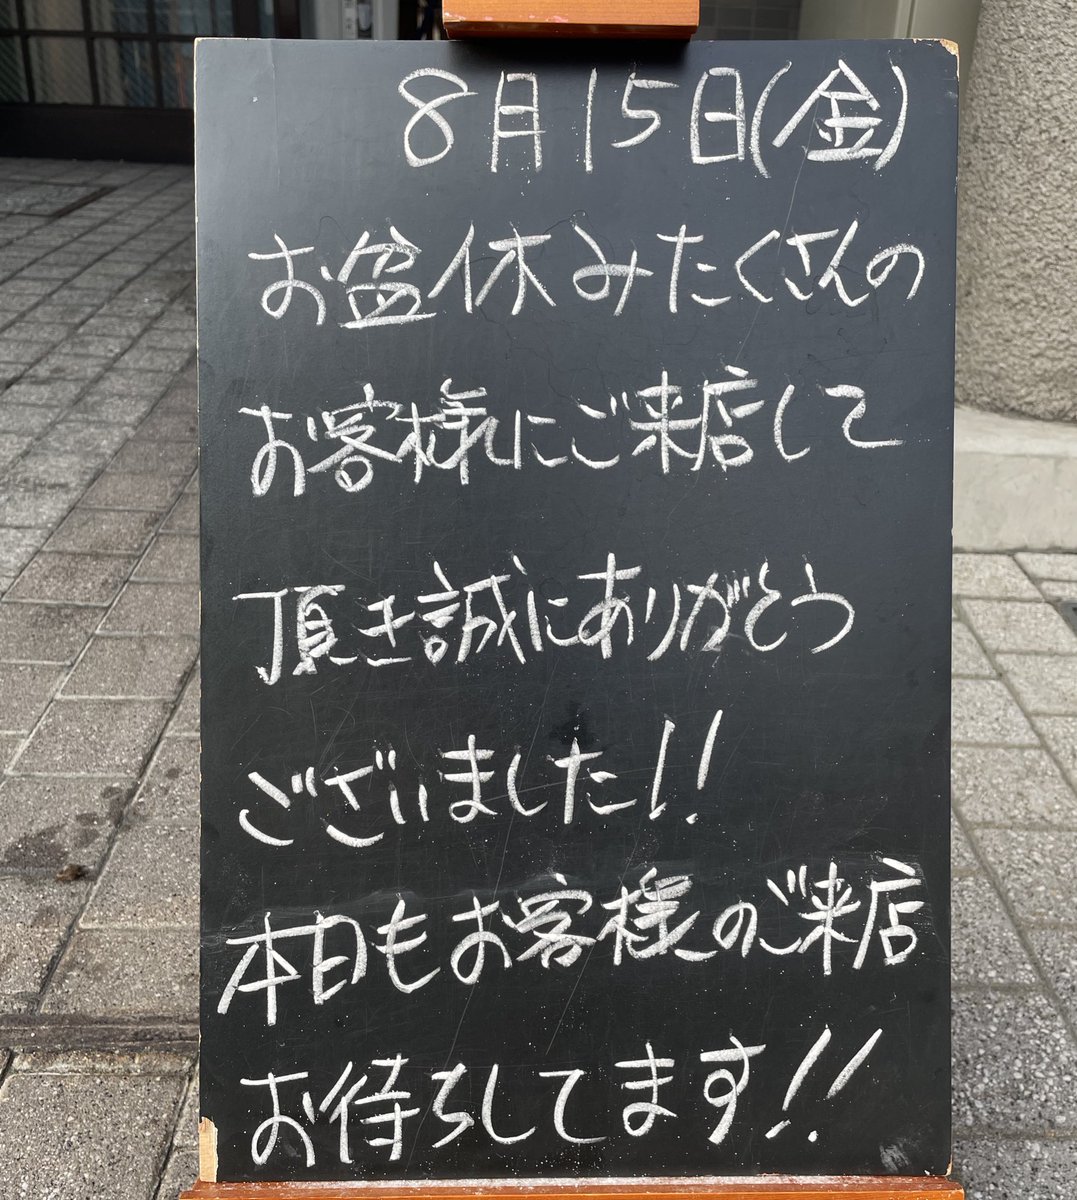 8月15日(金)
お盆休みたくさんの
お客様にご来店して
頂き誠にありがとう
ございました!!
本日もお客様のご来店
お待ちしてます!!